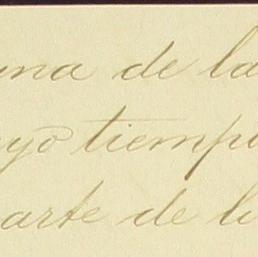 una de la
uyo tiempo
arte de l